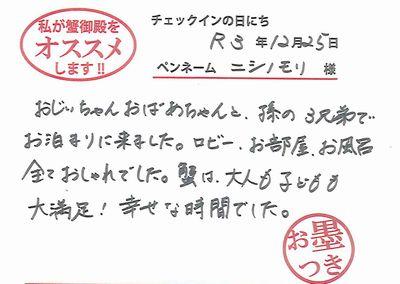 私が蟹御殿を
オススメ
します!!
チェックインの日にち
R3年12月25日
ペンネーム ニシノモリ 様
おじいちゃんおばあちゃんと、孫の3兄弟で
お泊まりに来ました。ロビー、お部屋、お風呂
全ておしゃれでした。蟹は、大人も子どもも
大満足!幸せな時間でした。
お墨
つき